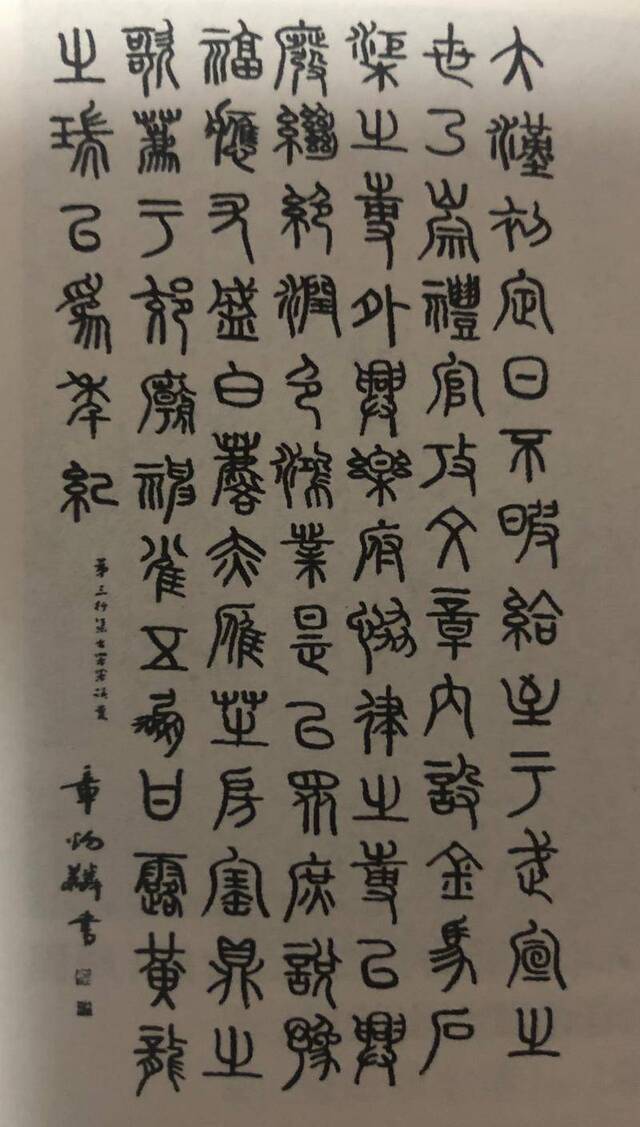 大漢初定日不暇給至于武宣之
世乃崇禮官攷文章內設金馬石
渠之事外興樂府協律之事以興
廢繼絕潤色鴻業是以眾庶說豫
福應尤盛白麐赤雁芝房寶鼎之
歌薦于郊廟神雀五鳳甘露黃龍
之瑞以為年紀
第三行渠之署署誤事
章炳麟書